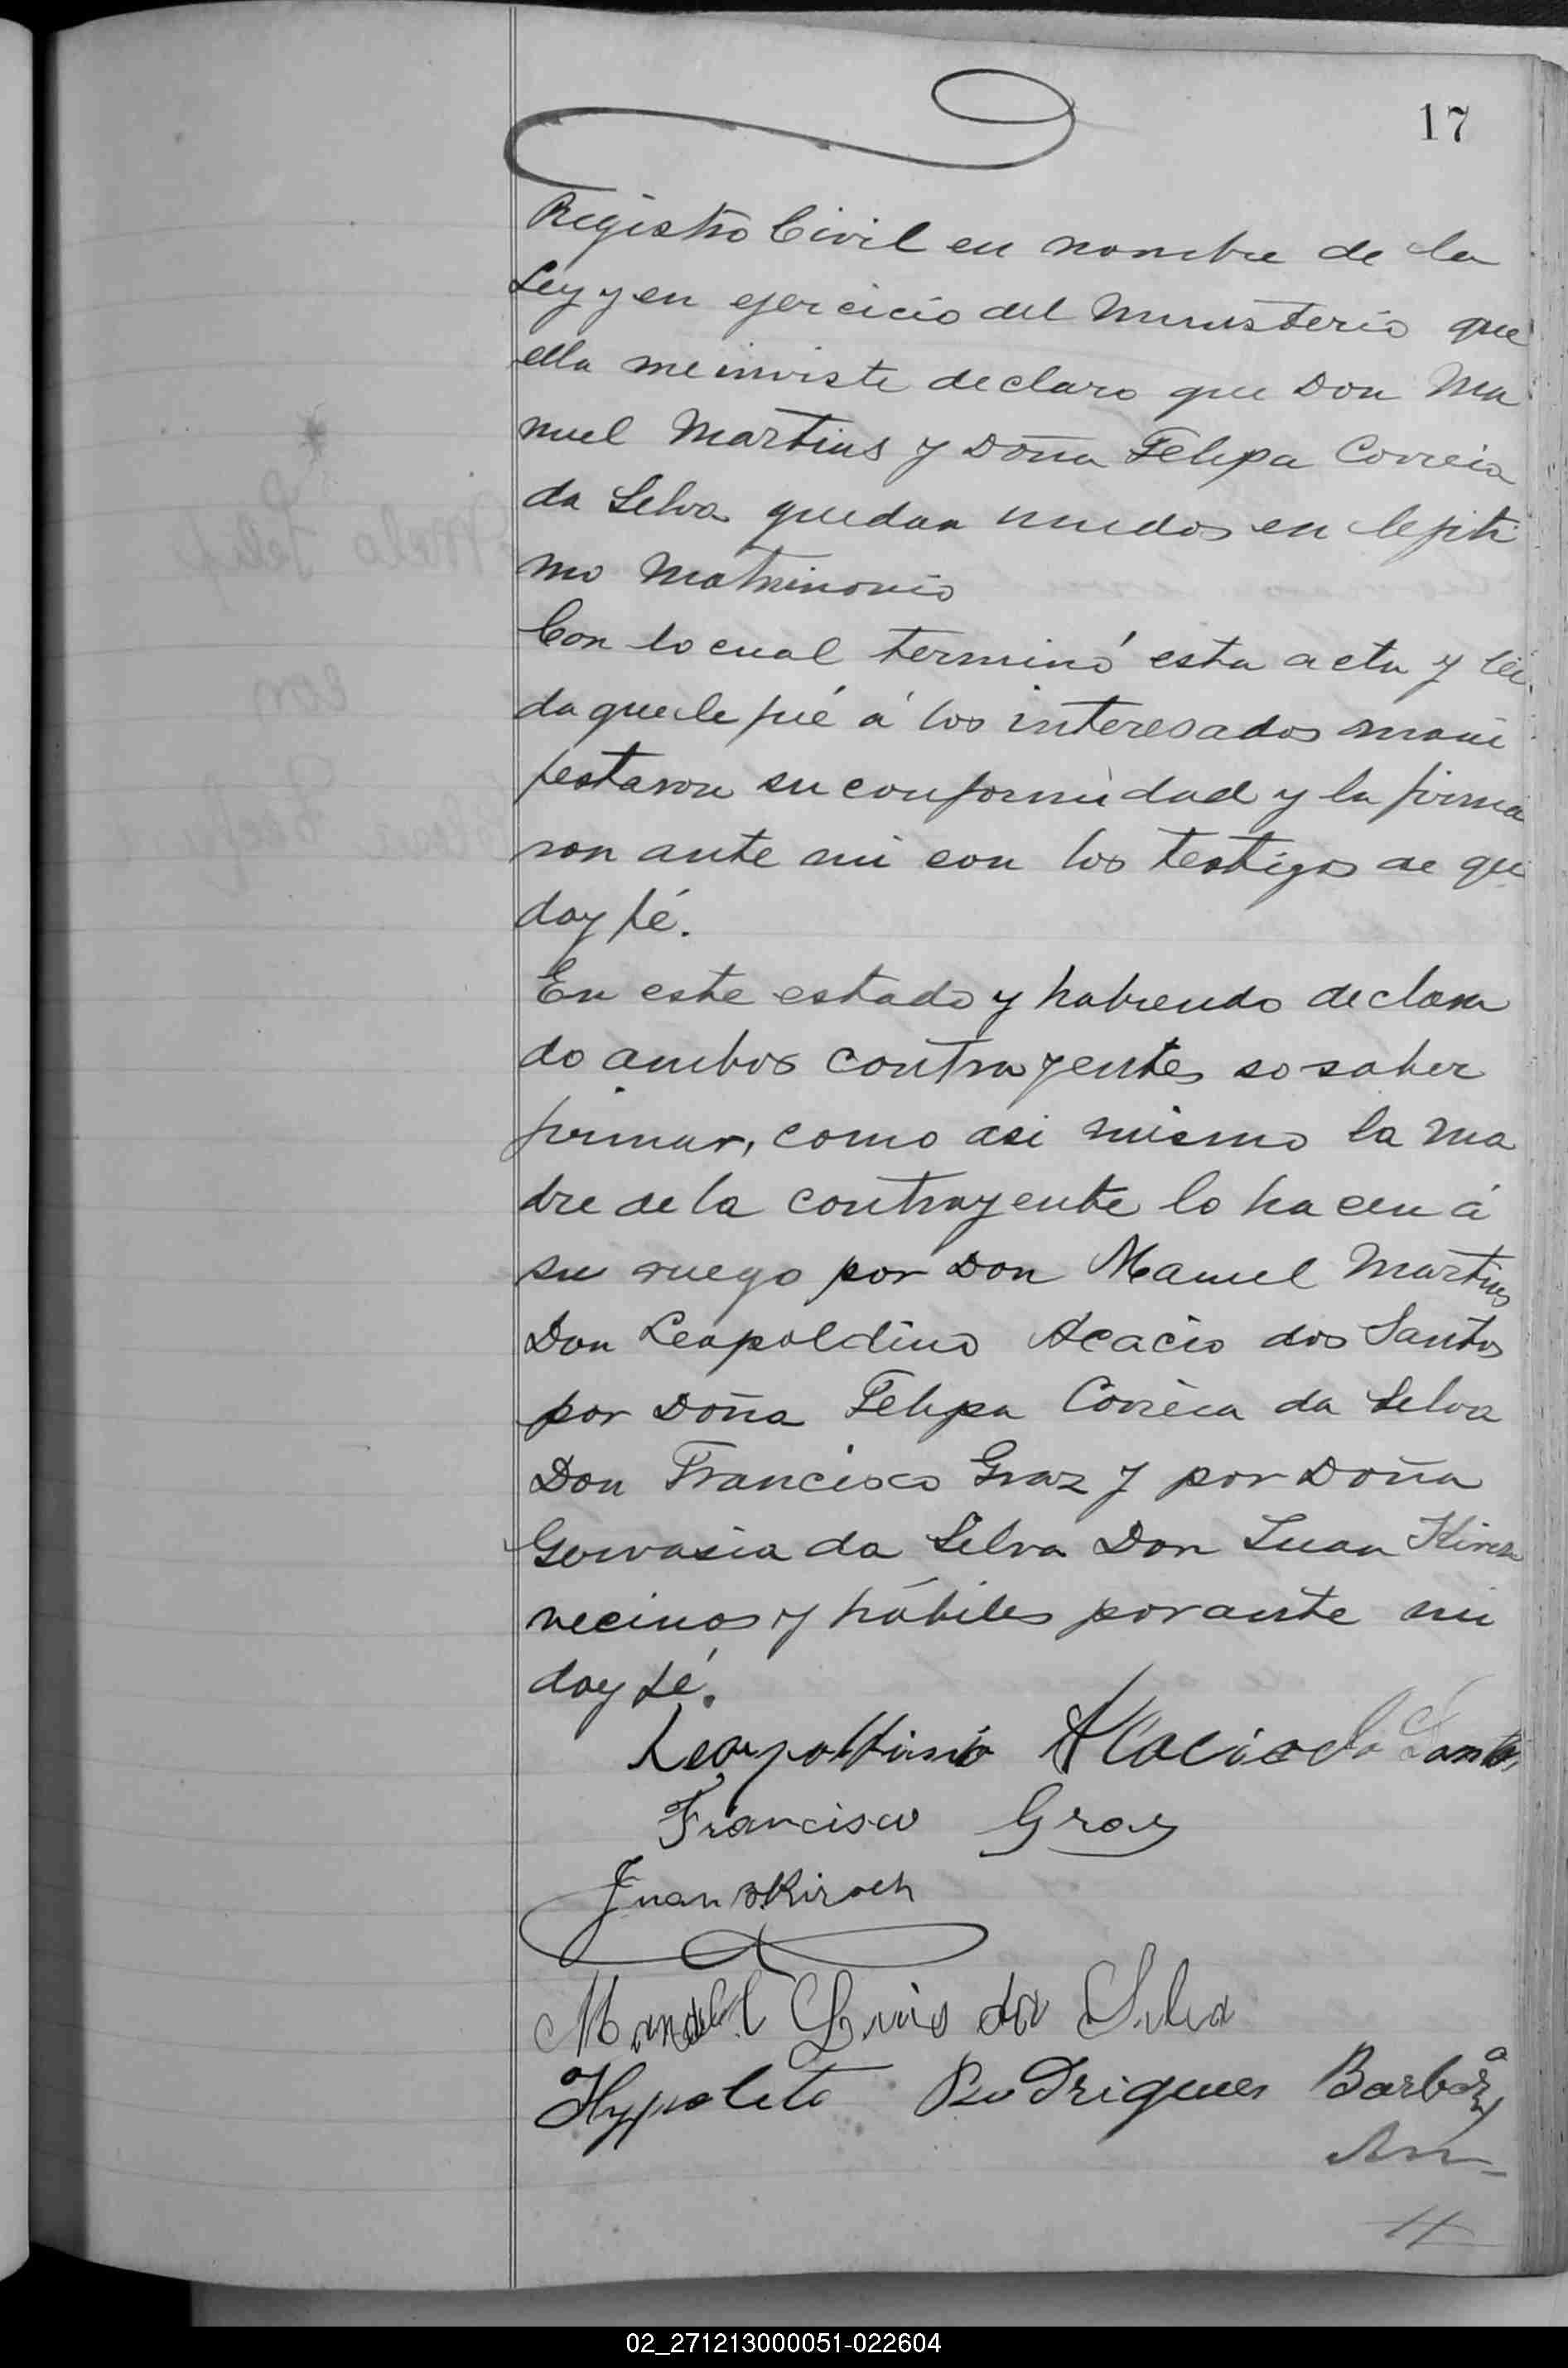 17
Registro Civil en nombre de la
Ley y en ejercicio del Ministerio que
ella me inviste declaro que Don Ma
nuel Martins y Doña Felipa Correia
da Selva quedan unidos en legiti
mo Matrimonio
Con lo cual terminó esta acta y lei
da que le fué á los interesados mani
festaron su conformidad y la firma
ron ante mi con los testigos de que
doy fé.
En este estado y habiendo declara
do ambos contrayentes no saber
firmar, como asi mismo la ma
dre de la contrayente lo hacen á
su ruego por Don Manuel Martins
Don Leopoldino Acacio dos Santos
por Doña Felipa Correia da Selva
Don Francisco Graz y por Doña
Gervasia da Silva Don Juan Kirsch
vecinos y hábiles por ante mi
doy fé.
Leopoldino Acacio do Santos
Francisco Graz
Juan B. Kirsch
Manuel Luis da Silva
Hypolito Rodrigues Barboza
02_271213000051-022604